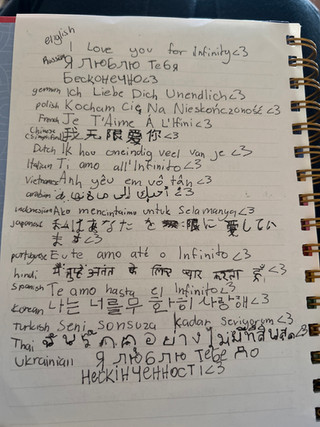 english
I Love you for Infinity<3
Russian Я Люблю Тебя
Бесконечно<3
german Ich Liebe Dich Unendlich<3
polish Kocham Cię Na Nieskończoność<3
French Je T'Aime À L'Ifini<3
Chinese 我无限爱你<3
Dutch Ik hou oneindig veel van je<3
Italian Ti amo all'Infinito<3
Vietnamese Anh yêu em vô tận
indonesian Aku mencintaimu untuk Selamanya<3
Japanese に愛してい
ます<3
portuguese Eu te amo até o Infinito<3
hindi मैं तुम्हें अनंत के लिए प्यार करता हूँ<3
Spanish Te amo hasta el Infinito<3
Korean 나는 너를 무한히 사랑해<3
Turkish Seni Sonsuza Kadar Seviyorum<3
Thai <3
Ukrainian Я Люблю Тебе До
Нескінченності<3